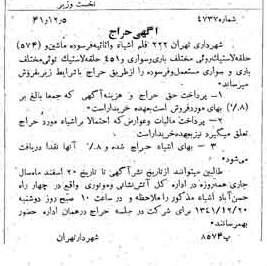 نخست وزیر
شماره ۴۷۳۷ ۳۱/۱۲/۵
آگهی حراج
شهرداری تهران ۲۲۲ قلم اشیاء واثاثیه فرسوده ماشین و (۵۷۴)
حلقه لاستیک روئی مختلف باری وسواری و ۴۵۱ حلقه لاستیک توئی مختلف
باری و سواری مستعمل وفرسوده را از طریق حراج باشرایط زیر بفروش
میرساند
۱- پرداخت حق حراج و هزینه آگهی که جمعا بالغ بر
(۸٪) بهای مورد فروش است بعهده خریدار است
۲- پرداخت مالیات وعوارض که احتمالا براشیاء مورد حراج
تعلق میگیرد نیز بعهده خریدار است
۳ - بهای اشیاء حراج شده و ۸٪ آنها نقدا دریافت
می‌شود
طالبین میتوانند از تاریخ نشر آگهی تا تاریخ ۲۰ اسفند ماه سال
جاری همه روزه در اداره کل آتش نشانی وموتوری واقع در چهار راه
حسن آباد اشیاء مذکور را ملاحظه و در ساعت ۱۰ صبح روز دوشنبه
۱۳۴۱/۱۲/۲۰ برای شرکت در جلسه حراج در همان اداره حضور
بهمرسانند
پ ۸۵۷۴ شهردار تهران